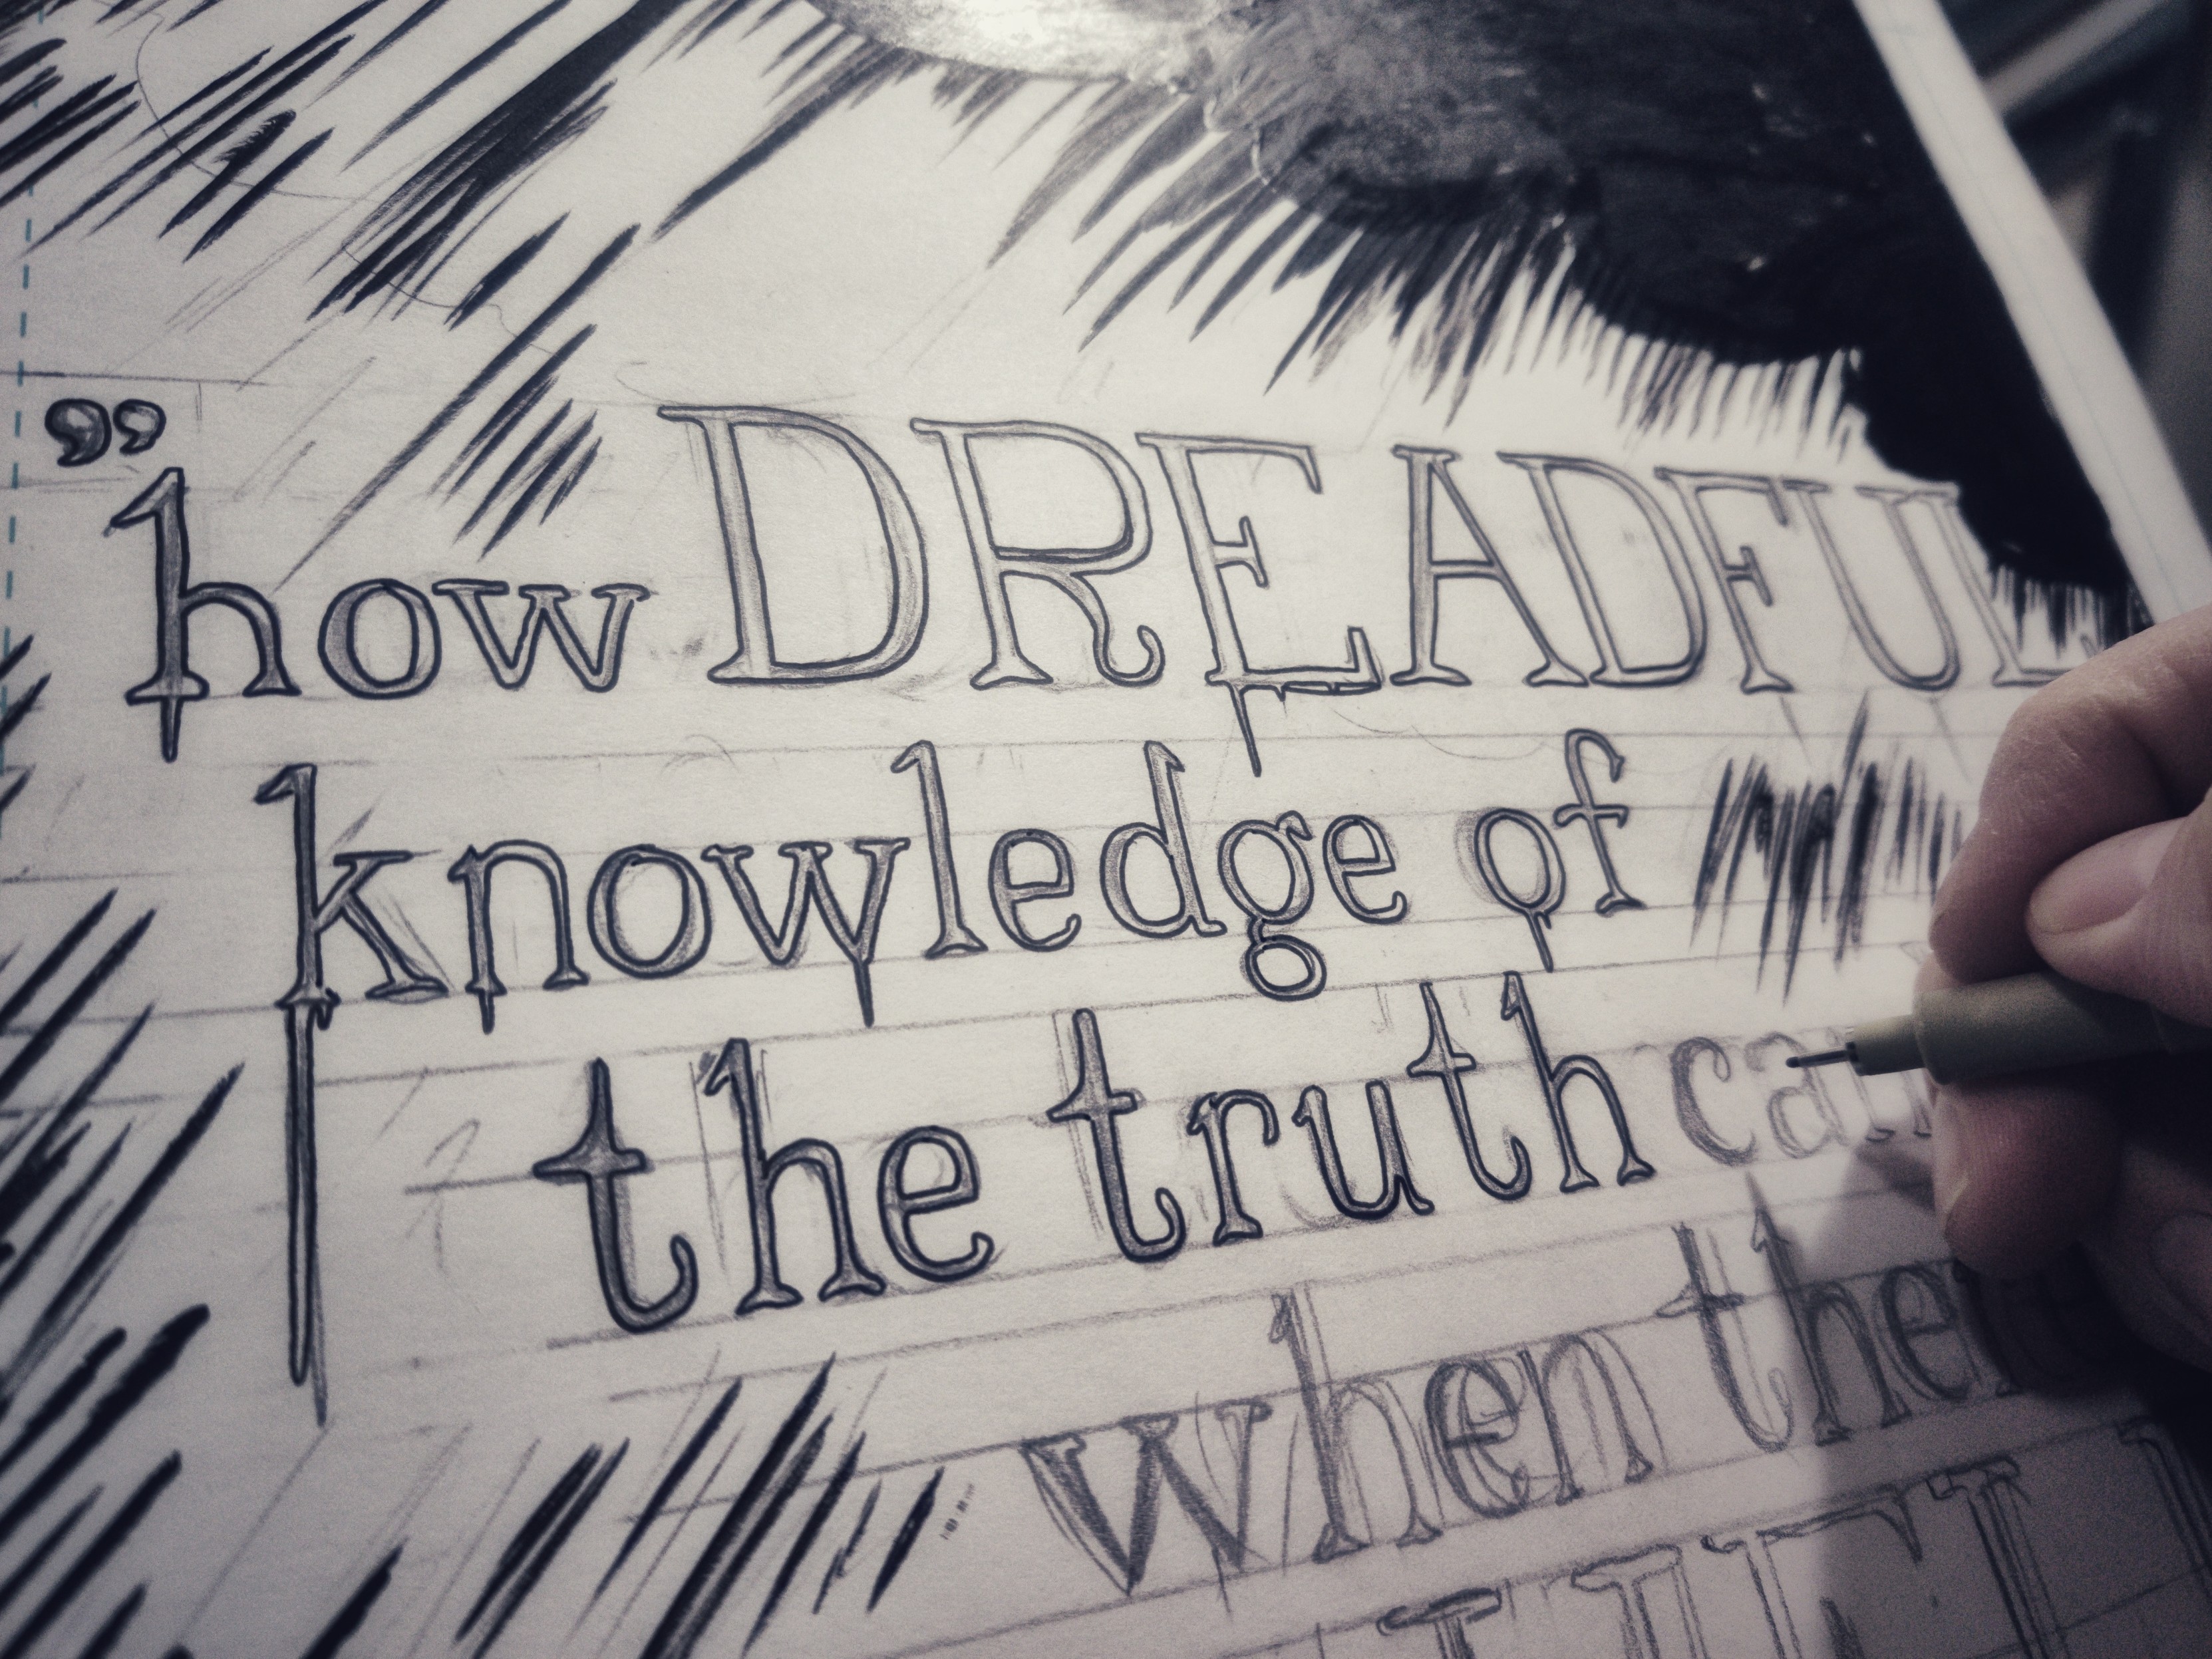 ”how DREADFUL
knowledge of
the truth can
when there